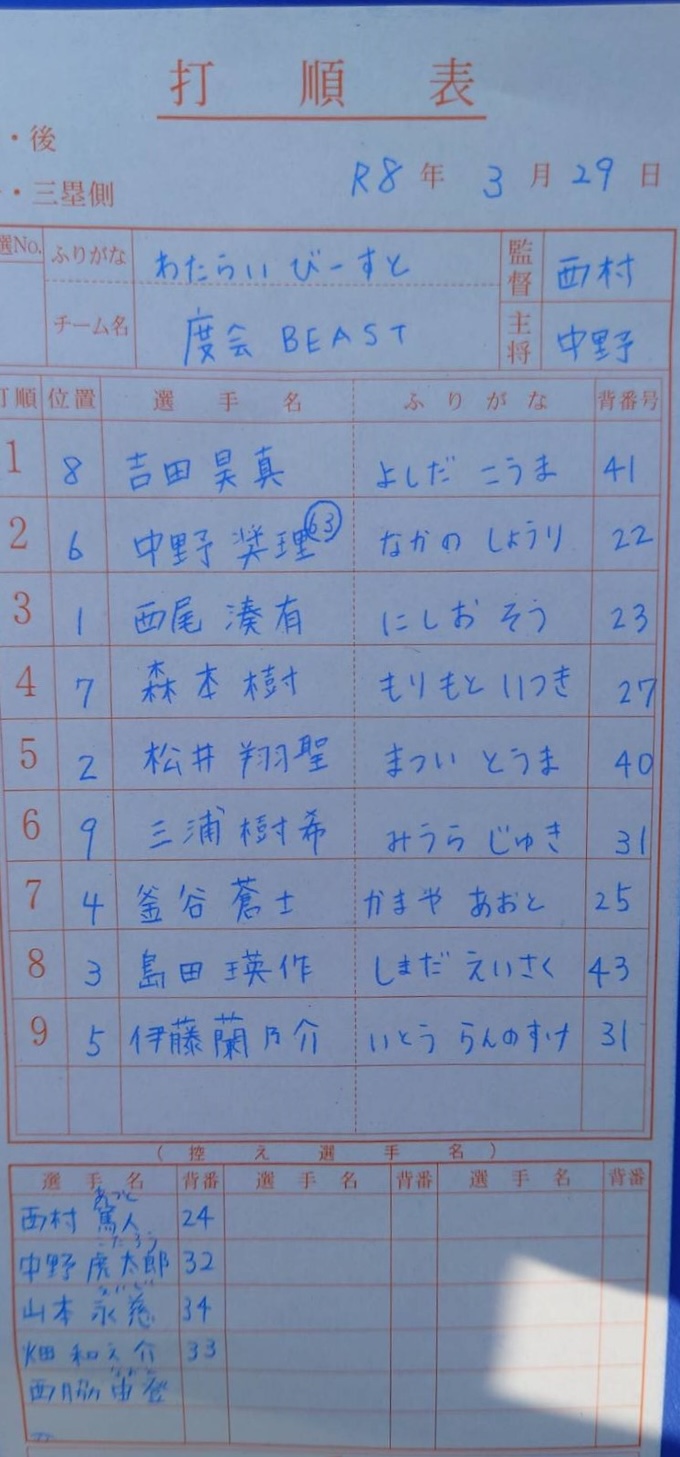 打順表
・後
・三塁側
R8年 3月29日
選No. ふりがな わたらい びーすと 監督 西村
チーム名 度会 BEAST 主将 中野
打順 位置 選手名 ふりがな 背番号
1 8 吉田 昊真 よしだ こうま 41
2 6 中野 奨理 63 なかの しょうり 22
3 1 西尾 湊有 にしお そう 23
4 7 森本 樹 もりもと いつき 27
5 2 松井 翔聖 まつい とうま 40
6 9 三浦 樹希 みうら じゅき 31
7 4 釜谷 蒼士 かまや あおと 25
8 3 島田 瑛作 しまだ えいさく 43
9 5 伊藤 蘭乃介 いとう らんのすけ 31
(控え選手名)
選手名 背番 選手名 背番 選手名 背番
あつと
西村 篤人 24
こたろう
中野 虎太郎 32
山本 永慈 34
畑 和之介 33
西脇